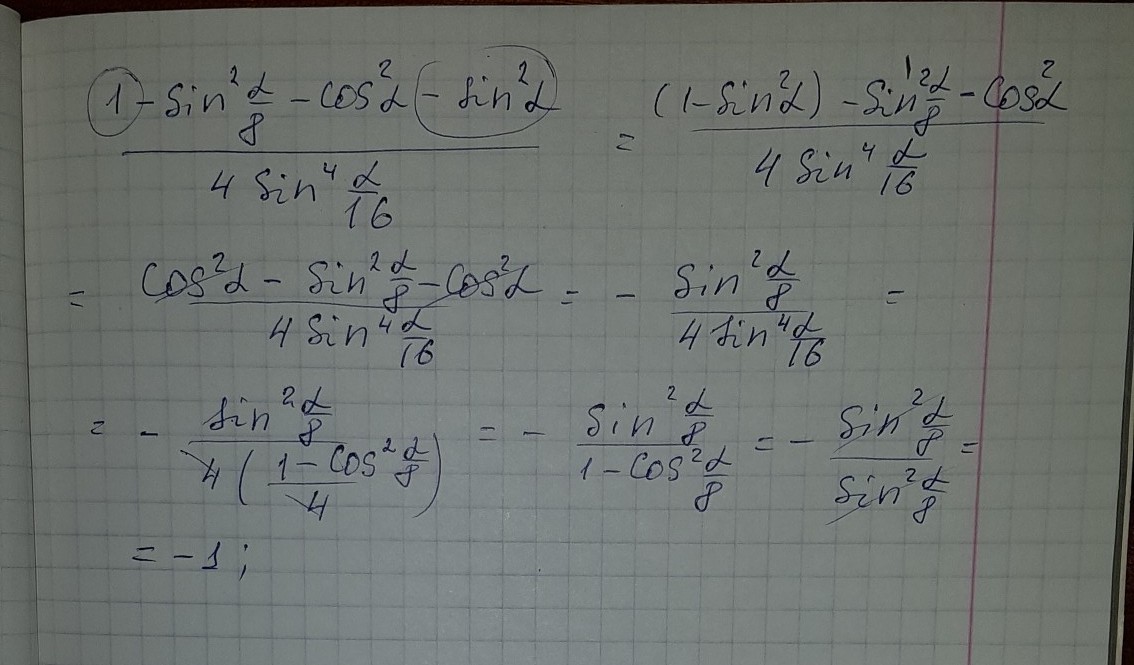 1 - sin² α/8 - cos² α - sin² α / 4 sin⁴ α/16 = (1 - sin² α) - sin² α/8 - cos² α / 4 sin⁴ α/16
= cos² α - sin² α/8 - cos² α / 4 sin⁴ α/16 = - sin² α/8 / 4 sin⁴ α/16 =
= - sin² α/8 / 4 (1 - cos² α/8 / 4) = - sin² α/8 / 1 - cos² α/8 = - sin² α/8 / sin² α/8 =
= -1;